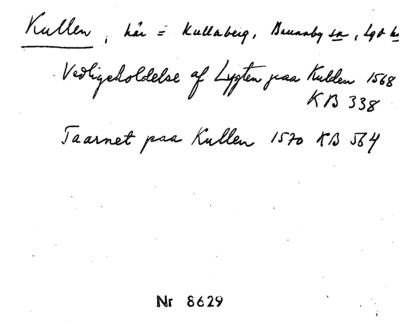 Kullen, här = Kullaberg, Brunnby sn, Lgd hs
Vedligeholdelse af Lygten paa Kullen 1568
KB 338
Taarnet paa Kullen 1570 KB 564
Nr 8629